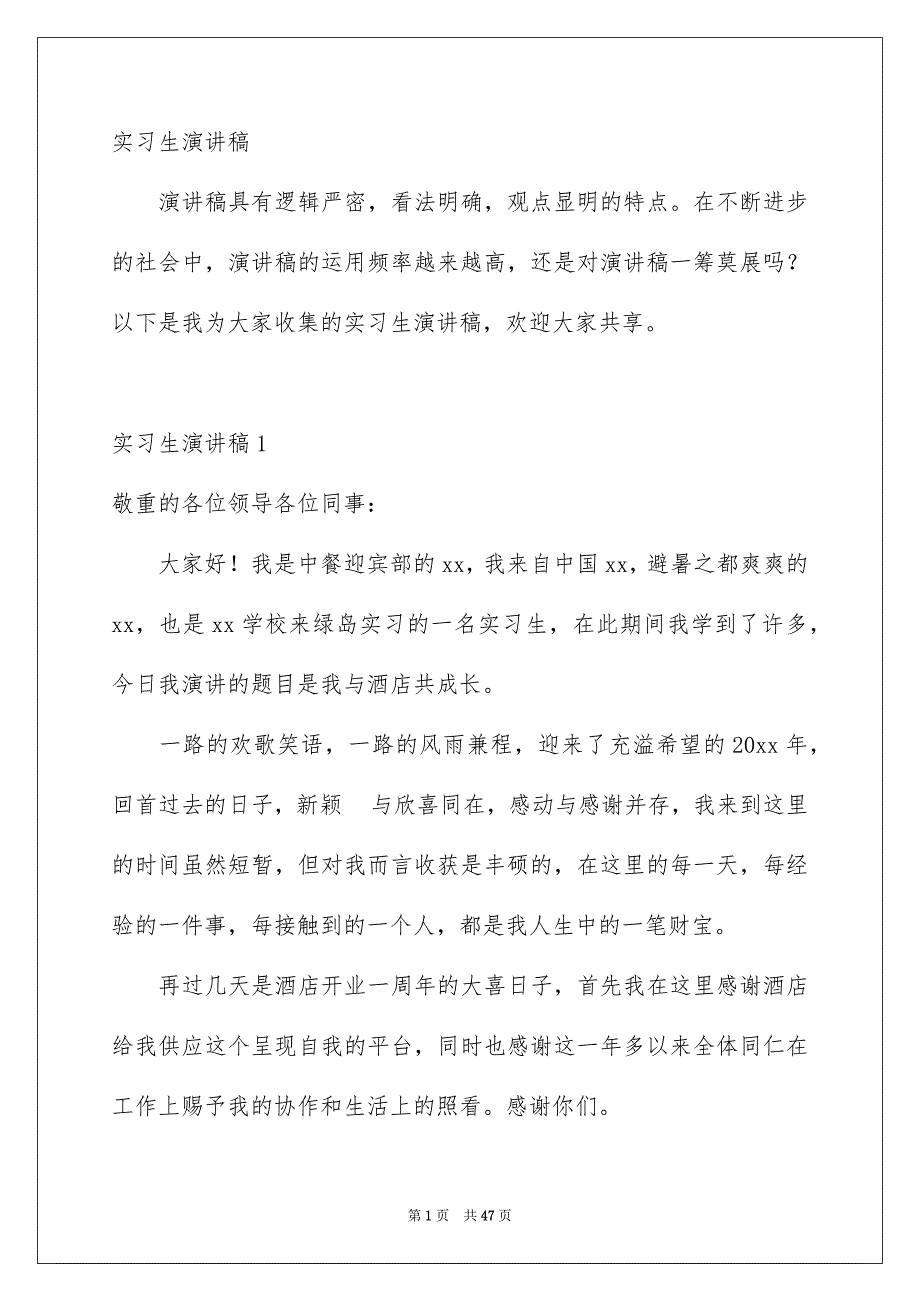 实习生演讲稿
演讲稿具有逻辑严密，看法明确，观点显明的特点。在不断进步
的社会中，演讲稿的运用频率越来越高，还是对演讲稿一筹莫展吗？
以下是我为大家收集的实习生演讲稿，欢迎大家共享。
实习生演讲稿 1
敬重的各位领导各位同事：
大家好！我是中餐迎宾部的 xx，我来自中国 xx，避暑之都爽爽的
xx，也是 xx 学校来绿岛实习的一名实习生，在此期间我学到了许多，
今日我演讲的题目是我与酒店共成长。
一路的欢歌笑语，一路的风雨兼程，迎来了充溢希望的 20xx 年，
回首过去的日子，新颖　与欣喜同在，感动与感谢并存，我来到这里
的时间虽然短暂，但对我而言收获是丰硕的，在这里的每一天，每经
验的一件事，每接触到的一个人，都是我人生中的一笔财宝。
再过几天是酒店开业一周年的大喜日子，首先我在这里感谢酒店
给我供应这个呈现自我的平台，同时也感谢这一年多以来全体同仁在
工作上赐予我的协作和生活上的照看。感谢你们。
第 1 页　共 47 页